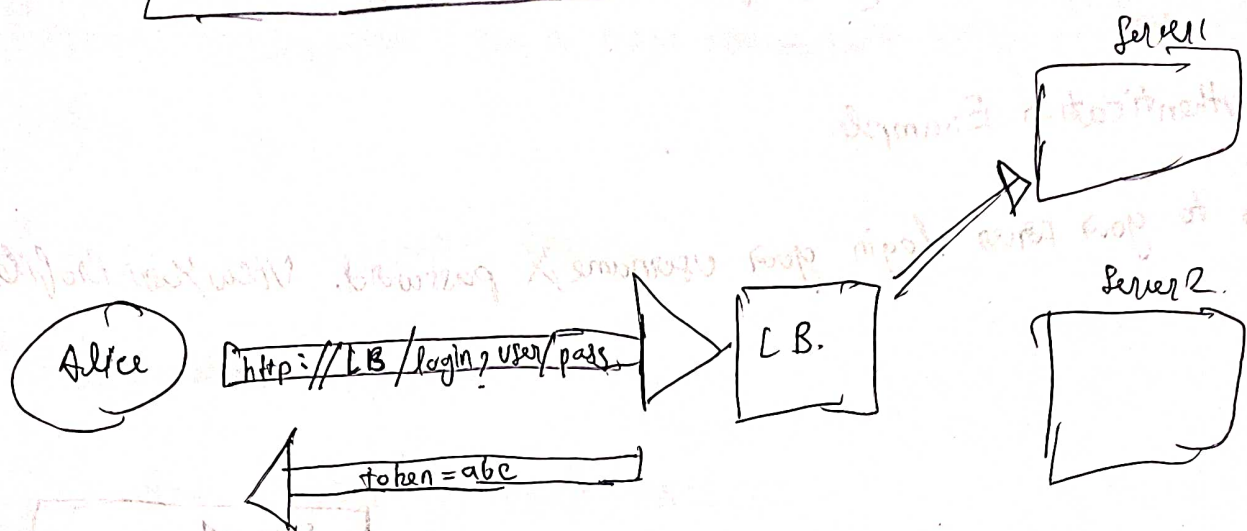 Server1
Server2.
Alice
http://LB/login?user/pass
LB.
token=abc